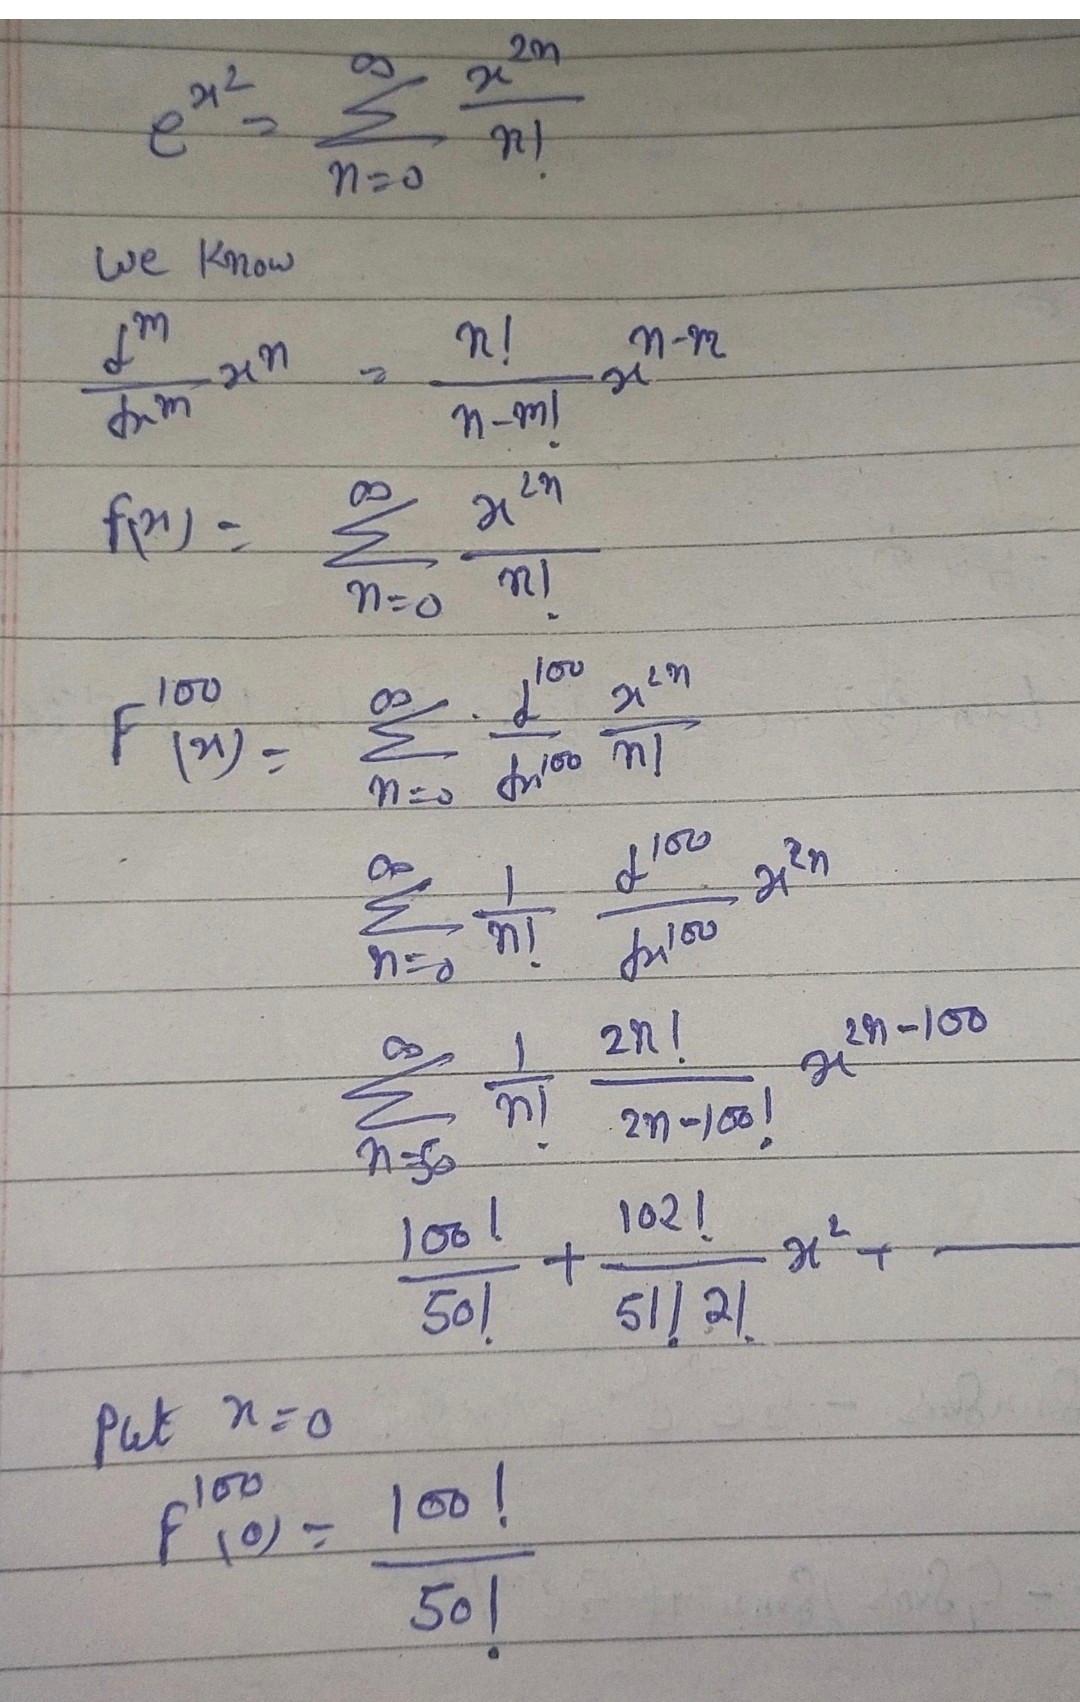 e^{x^2} = \sum_{n=0}^{\infty} \frac{x^{2n}}{n!}
we know
\frac{d^m}{dx^m} x^n = \frac{n!}{n-m!} x^{n-m}
f(x) = \sum_{n=0}^{\infty} \frac{x^{2n}}{n!}
F^{100}(x) = \sum_{n=0}^{\infty} \frac{d^{100}}{dx^{100}} \frac{x^{2n}}{n!}
\sum_{n=0}^{\infty} \frac{1}{n!} \frac{d^{100}}{dx^{100}} x^{2n}
\sum_{n=50}^{\infty} \frac{1}{n!} \frac{2n!}{2n-100!} x^{2n-100}
\frac{100!}{50!} + \frac{102!}{51! 2!} x^2 + —
Put x=0
F^{100}(0) = \frac{100!}{50!}